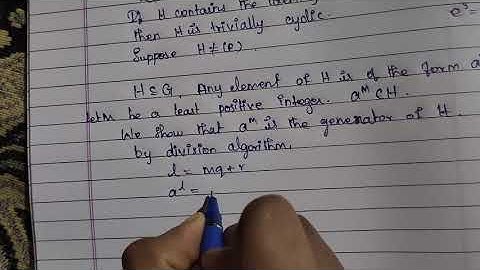 If H contains the iden
then H is trivially cyclic.
e³ =
Suppose H ≠ (e).
H ⊆ G, Any element of H is of the form a
let m be a least positive integer. aᵐ ∈ H.
We show that aᵐ is the generator of H.
by division algorithm,
l = mq + r
aˡ =